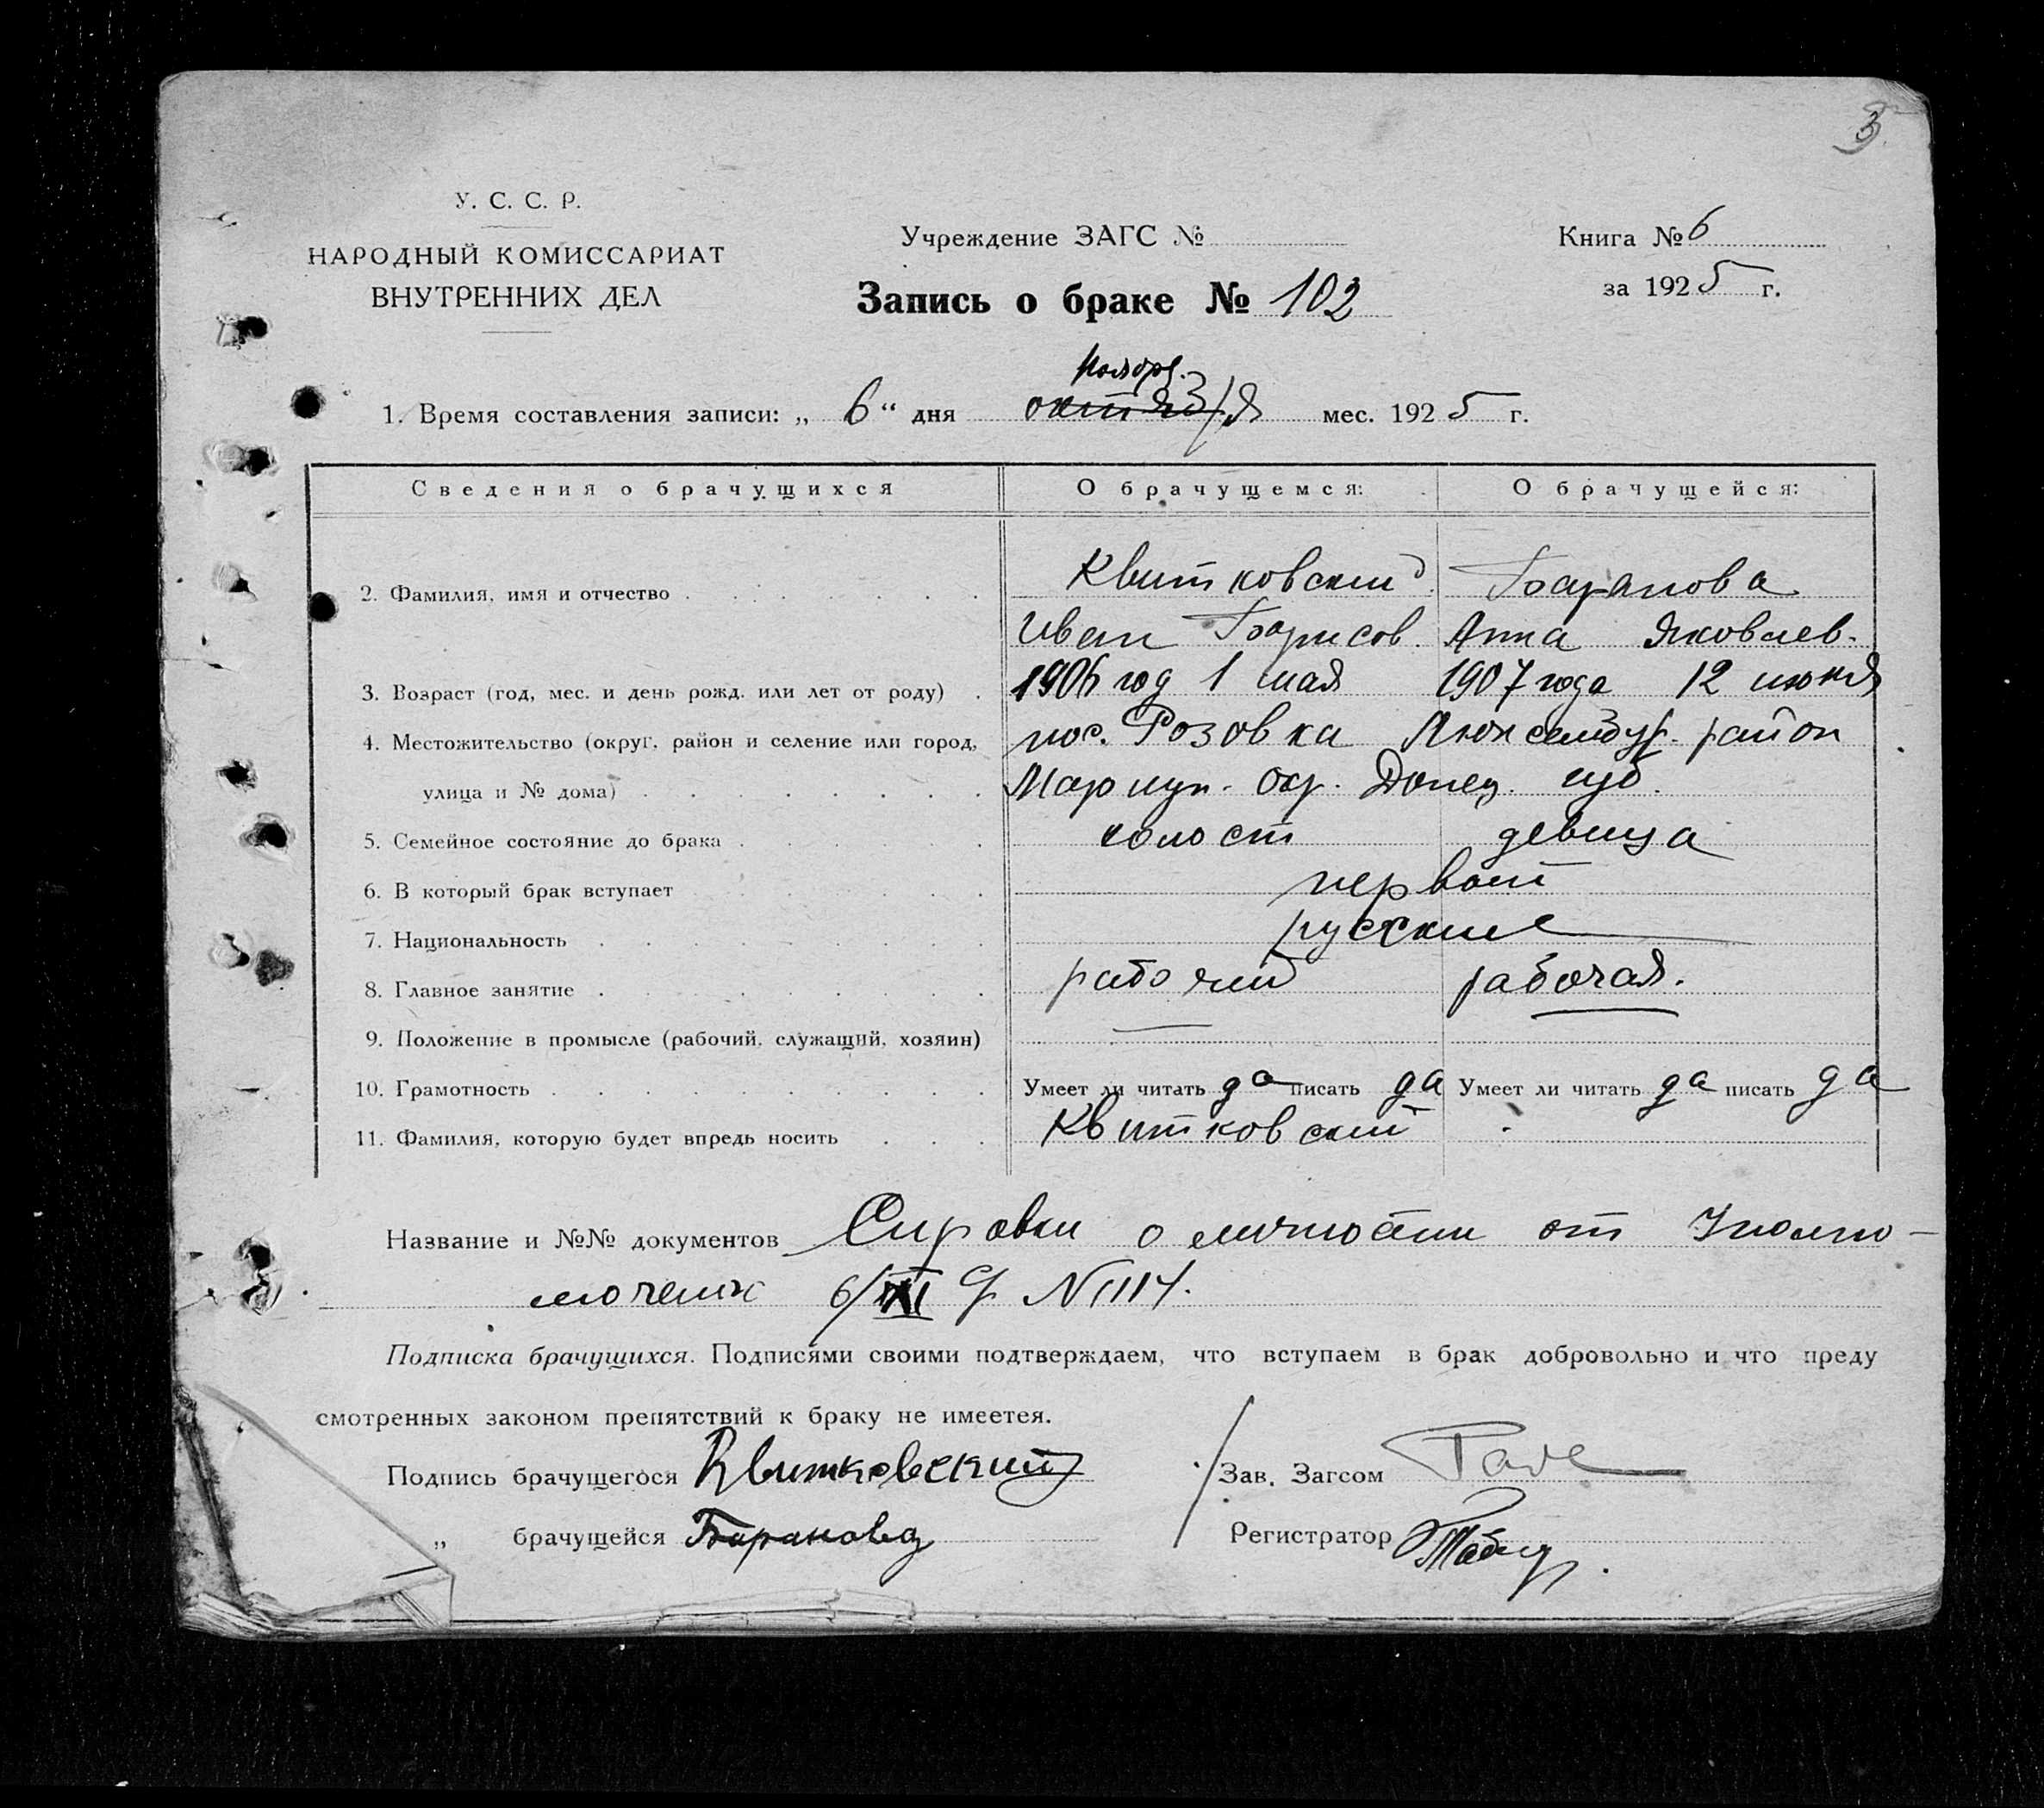 3
У. С. С. Р.
НАРОДНЫЙ КОМИССАРИАТ
ВНУТРЕННИХ ДЕЛ
Учреждение ЗАГС №
Книга № 6
за 1925 г.
Запись о браке № 102
Ноябр.
1. Время составления записи: „ 6 “ дня октября мес. 1925 г.
Сведения о брачущихся О брачущемся: О брачущейся:
Квитковский Баранова
2. Фамилия, имя и отчество
Иван Борисов. Анна Яковлев.
3. Возраст (год, мес. и день рожд. или лет от роду) 1906 год 1 мая 1907 года 12 июня
4. Местожительство (округ, район и селение или город, пос. Розовка район
улица и № дома) Мариуп. окр. Донец. губ.
5. Семейное состояние до брака холост девица
6. В который брак вступает первый
7. Национальность русские
8. Главное занятие рабочий рабочая.
9. Положение в промысле (рабочий, служащий, хозяин)
10. Грамотность Умеет ли читать да писать да Умеет ли читать да писать да
11. Фамилия, которую будет впредь носить Квитковский
Название и №№ документов Справки о личности от Уполно-
моченн 6/XI № 1114.
Подписка брачущихся. Подписями своими подтверждаем, что вступаем в брак добровольно и что преду
смотренных законом препятствий к браку не имеетея.
Подпись брачущегося Квитковский Зав. Загсом
„ брачущейся Баранова Регистратор